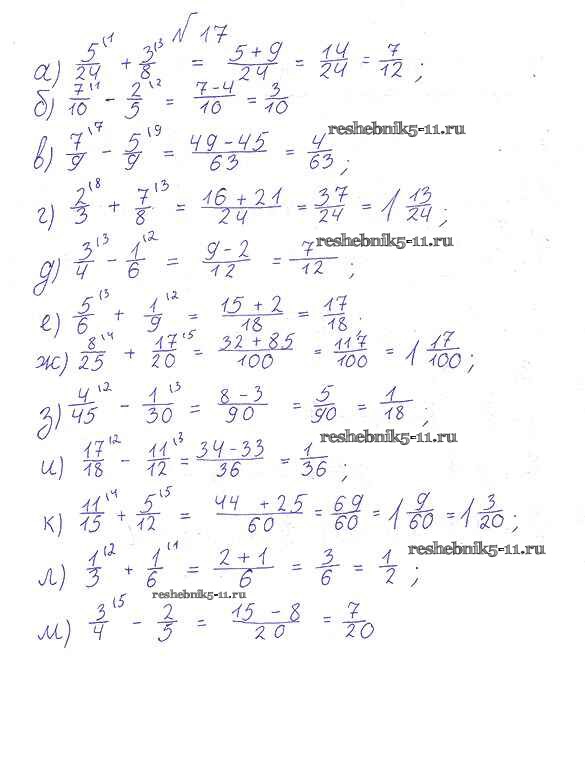 № 17
а) 5/24 ⁽¹ + 3/8 ⁽³ = (5+9)/24 = 14/24 = 7/12 ;
б) 7/10 ⁽¹ - 2/5 ⁽² = (7-4)/10 = 3/10
reshebnik5-11.ru
в) 7/9 ⁽⁷ - 5/9 ⁽⁹ = (49-45)/63 = 4/63 ;
г) 2/3 ⁽⁸ + 7/8 ⁽³ = (16+21)/24 = 37/24 = 1 13/24 ;
reshebnik5-11.ru
д) 3/4 ⁽³ - 1/6 ⁽² = (9-2)/12 = 7/12 ;
е) 5/6 ⁽³ + 1/9 ⁽² = (15+2)/18 = 17/18 ;
ж) 8/25 ⁽⁴ + 17/20 ⁽⁵ = (32+85)/100 = 117/100 = 1 17/100 ;
з) 4/45 ⁽² - 1/30 ⁽³ = (8-3)/90 = 5/90 = 1/18 ;
reshebnik5-11.ru
и) 17/18 ⁽² - 11/12 ⁽³ = (34-33)/36 = 1/36 ;
к) 11/15 ⁽⁴ + 5/12 ⁽⁵ = (44+25)/60 = 69/60 = 1 9/60 = 1 3/20 ;
reshebnik5-11.ru
л) 1/3 ⁽² + 1/6 ⁽¹ = (2+1)/6 = 3/6 = 1/2 ;
reshebnik5-11.ru
м) 3/4 ⁽⁵ - 2/5 = (15-8)/20 = 7/20